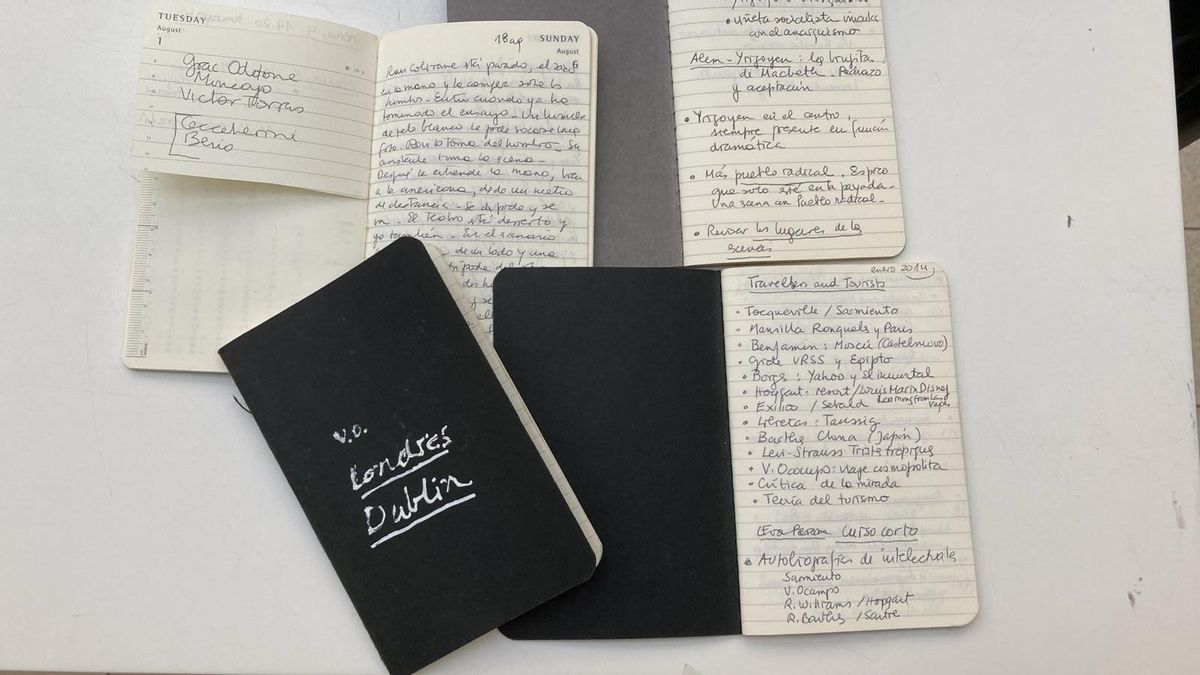 TUESDAY
August
1
Víctor Torres
Ceccherini
Berio
18 ag
SUNDAY
August
6
Ravi Coltrane está parado, el saxo
en la mano y la campera sobre los
hombros. Entro cuando ya ha
terminado el ensayo. Un hombre
de pelo blanco le pide sacarse una
foto. Ravi lo toma del hombro. Su
asistente toma la escena.
Después le extiende la mano,
a la americana, desde un metro
de distancia. Se despide y se
va. El Teatro está desierto y
yo también. En el escenario
de un lado y una
V.O.
Londres
Dublin
con el anarquismo
Alem - Yrigoyen: las brujitas
de Macbeth. Rechazo
y aceptación
• Yrigoyen en el centro,
siempre presente en función
dramática
• Más pueblo radical. Espero
que solo esté en la payada.
Una escena con Pueblo radical.
• Revisar los lugares de las
escenas
enero 2014
Travellers and Tourists
• Tocqueville / Sarmiento
• Mansilla Ranqueles y París
• Benjamin: Moscú (Castelnuovo)
• Gide URSS y Egipto
• Borges: Yahoo y El inmortal
• Hoggart: resort / Louis Marin Disney
Learning from Las
Vegas
• Exilios / Sebald
• Libretas: Taussig
• Barthes China (Japón)
• Levi-Strauss Tristes trópiques
• V. Ocampo: viaje cosmopolita
• Crítica de la mirada
• Teoría del turismo
Eva Peron Curso corto
• Autobiografías de intelectuales
Sarmiento
V. Ocampo
R. Williams / Hoggart
R. Barthes / Sartre